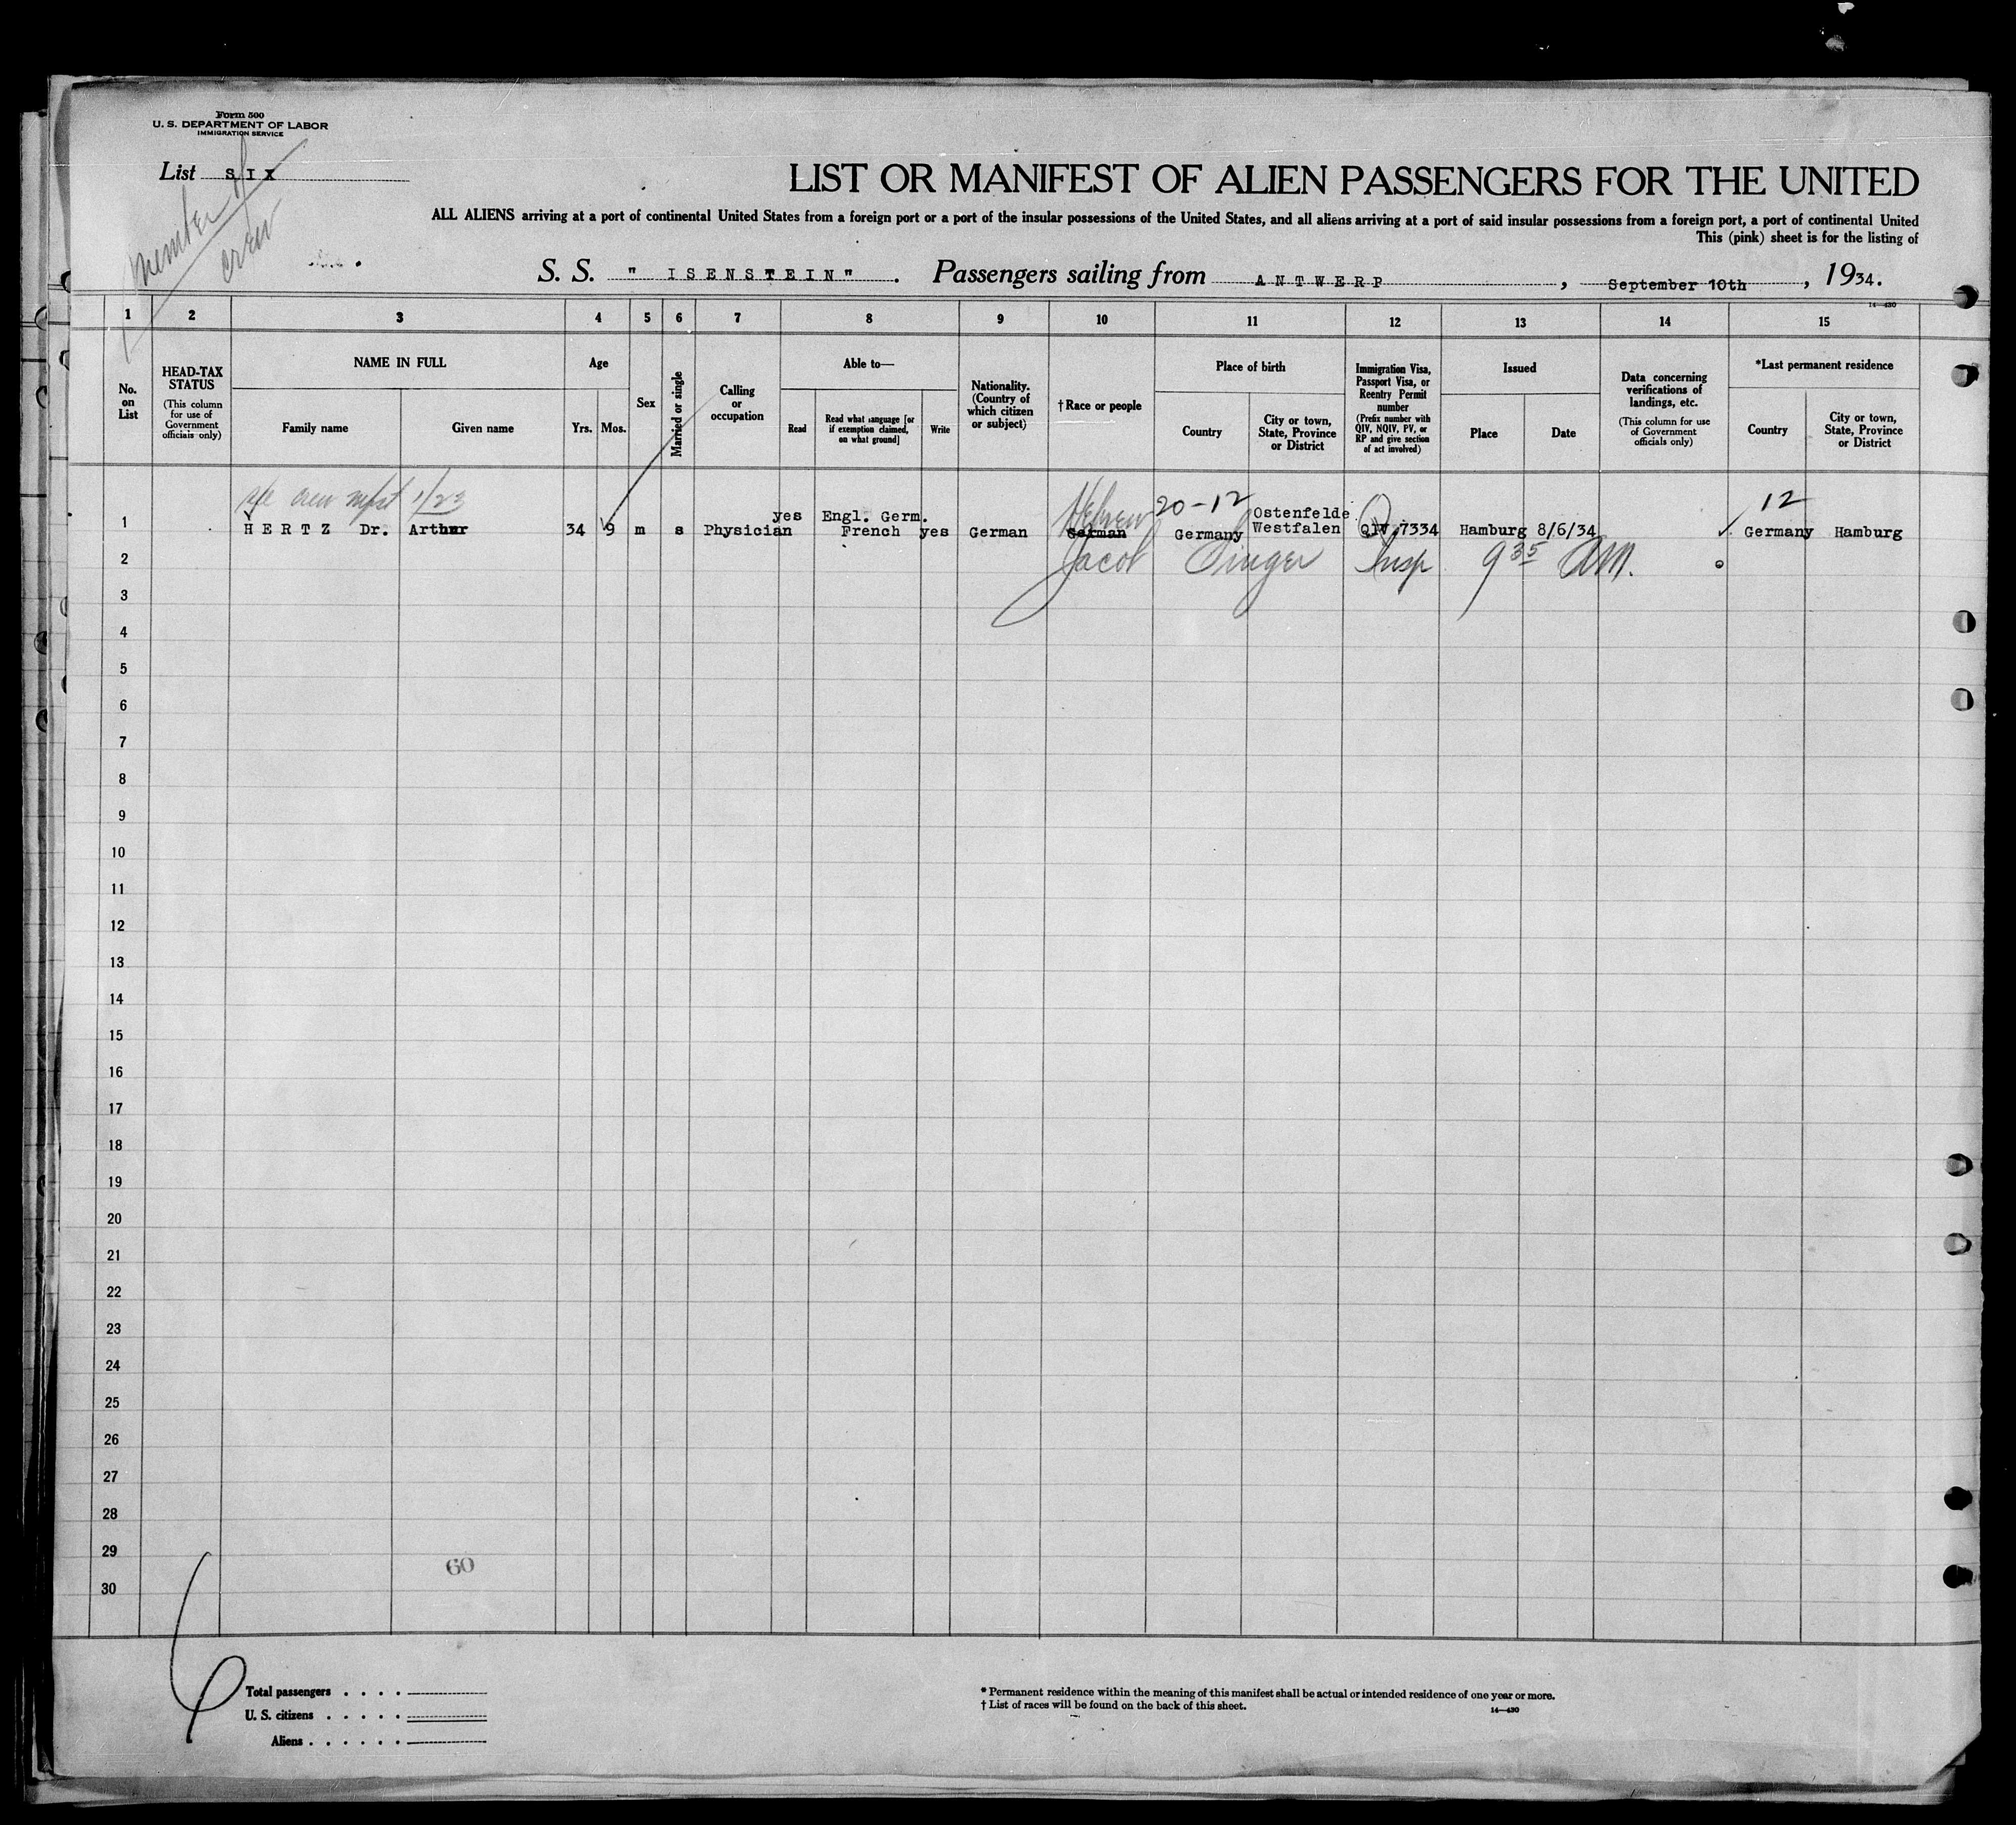 Form 500
U. S. DEPARTMENT OF LABOR
IMMIGRATION SERVICE
List SIX
member of
crew
LIST OR MANIFEST OF ALIEN PASSENGERS FOR THE UNITED
ALL ALIENS arriving at a port of continental United States from a foreign port or a port of the insular possessions of the United States, and all aliens arriving at a port of said insular possessions from a foreign port, a port of continental United
This (pink) sheet is for the listing of
S. S. " ISENSTEIN" . Passengers sailing from ANTWERP , September 10th , 1934.
14—430
1 2 3 4 5 6 7 8 9 10 11 12 13 14 15
No. on List
HEAD-TAX STATUS
(This column for use of Government officials only)
NAME IN FULL
Family name
Given name
Age
Yrs. Mos.
Sex
Married or single
Calling or occupation
Able to—
Read
Read what language [or if exemption claimed, on what ground]
Write
Nationality. (Country of which citizen or subject)
† Race or people
Place of birth
Country
City or town, State, Province or District
Immigration Visa, Passport Visa, or Reentry Permit number
(Prefix number with QIV, NQIV, PV, or RP and give section of act involved)
Issued
Place
Date
Data concerning verifications of landings, etc.
(This column for use of Government officials only)
*Last permanent residence
Country
City or town, State, Province or District
crew 1/23
Hebrew 20-12 12
1 HERTZ Dr. Arthur 34 9 m s Physician yes Engl. Germ. French yes German German Germany Ostenfelde Westfalen QIV 7334 Hamburg 8/6/34 Germany Hamburg
2 Jacob Singer Insp 9 35 AM.
3
4
5
6
7
8
9
10
11
12
13
14
15
16
17
18
19
20
21
22
23
24
25
26
27
28
29
60
30
Total passengers . . . .
U. S. citizens . . . . .
Aliens . . . . . .
* Permanent residence within the meaning of this manifest shall be actual or intended residence of one year or more.
† List of races will be found on the back of this sheet.
14—430